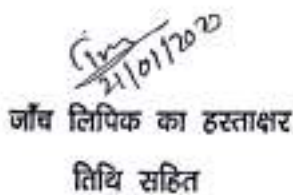 21/01/2020
जाँच लिपिक का हस्ताक्षर
तिथि सहित